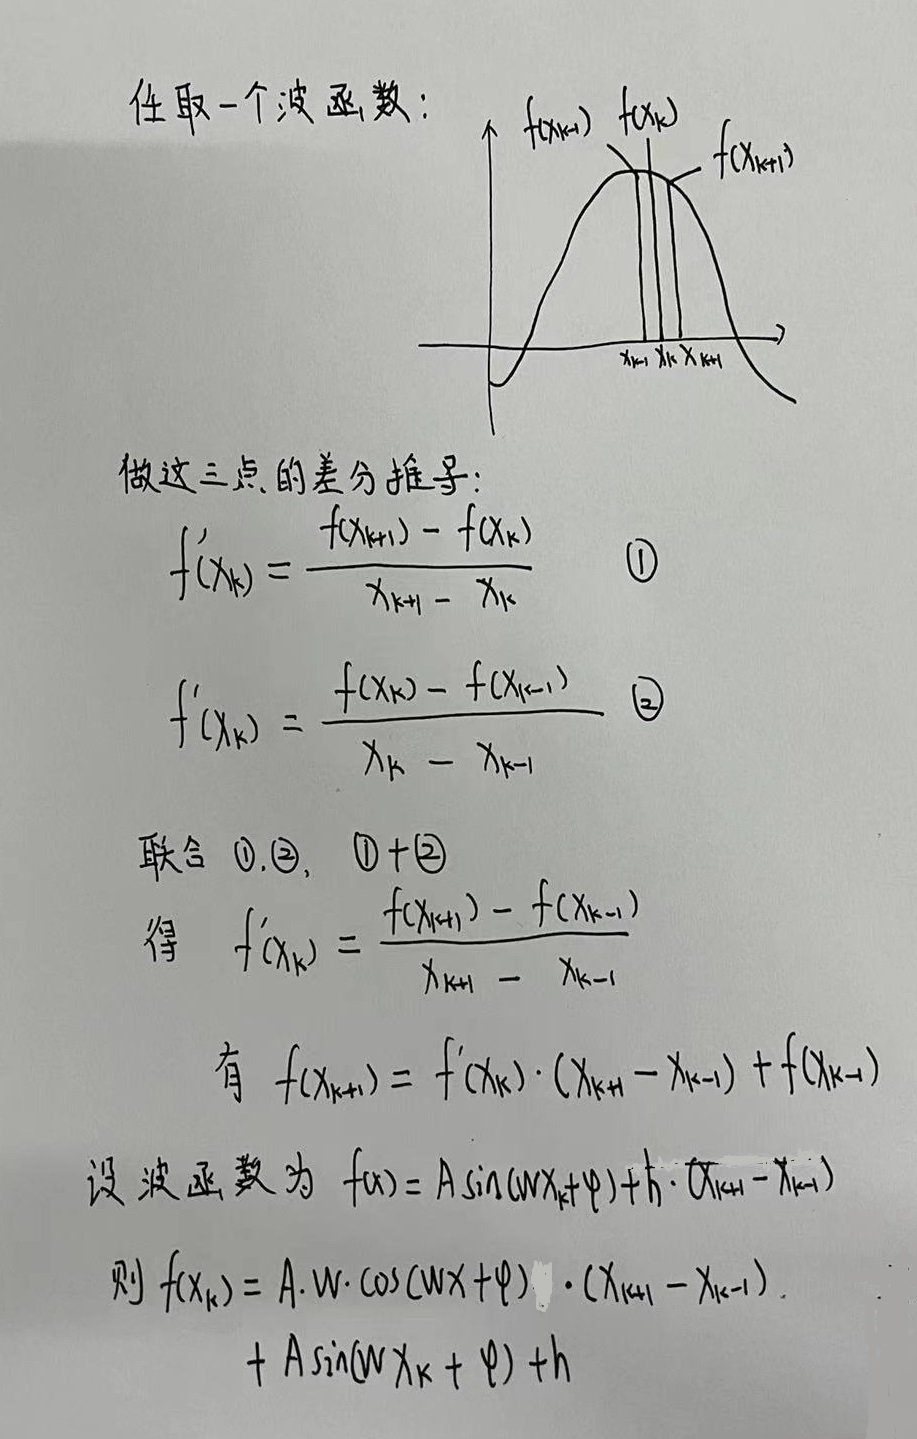 任取一个波函数:
f(x_{k-1}) f(x_k) f(x_{k+1})
x_{k-1} x_k x_{k+1}
做这三点的差分推导:
f'(x_k) = \frac{f(x_{k+1}) - f(x_k)}{x_{k+1} - x_k} ①
f'(x_k) = \frac{f(x_k) - f(x_{k-1})}{x_k - x_{k-1}} ②
联合 ①.②, ①+②
得 f'(x_k) = \frac{f(x_{k+1}) - f(x_{k-1})}{x_{k+1} - x_{k-1}}
有 f(x_{k+1}) = f'(x_k)·(x_{k+1} - x_{k-1}) + f(x_{k-1})
设波函数为 f(x) = A sin(wx_k+φ)+h·(x_{k+1} - x_{k-1})
则 f(x_k) = A·w·cos(wx+φ) ·(x_{k+1} - x_{k-1}).
+ A sin(w x_k + φ) + h